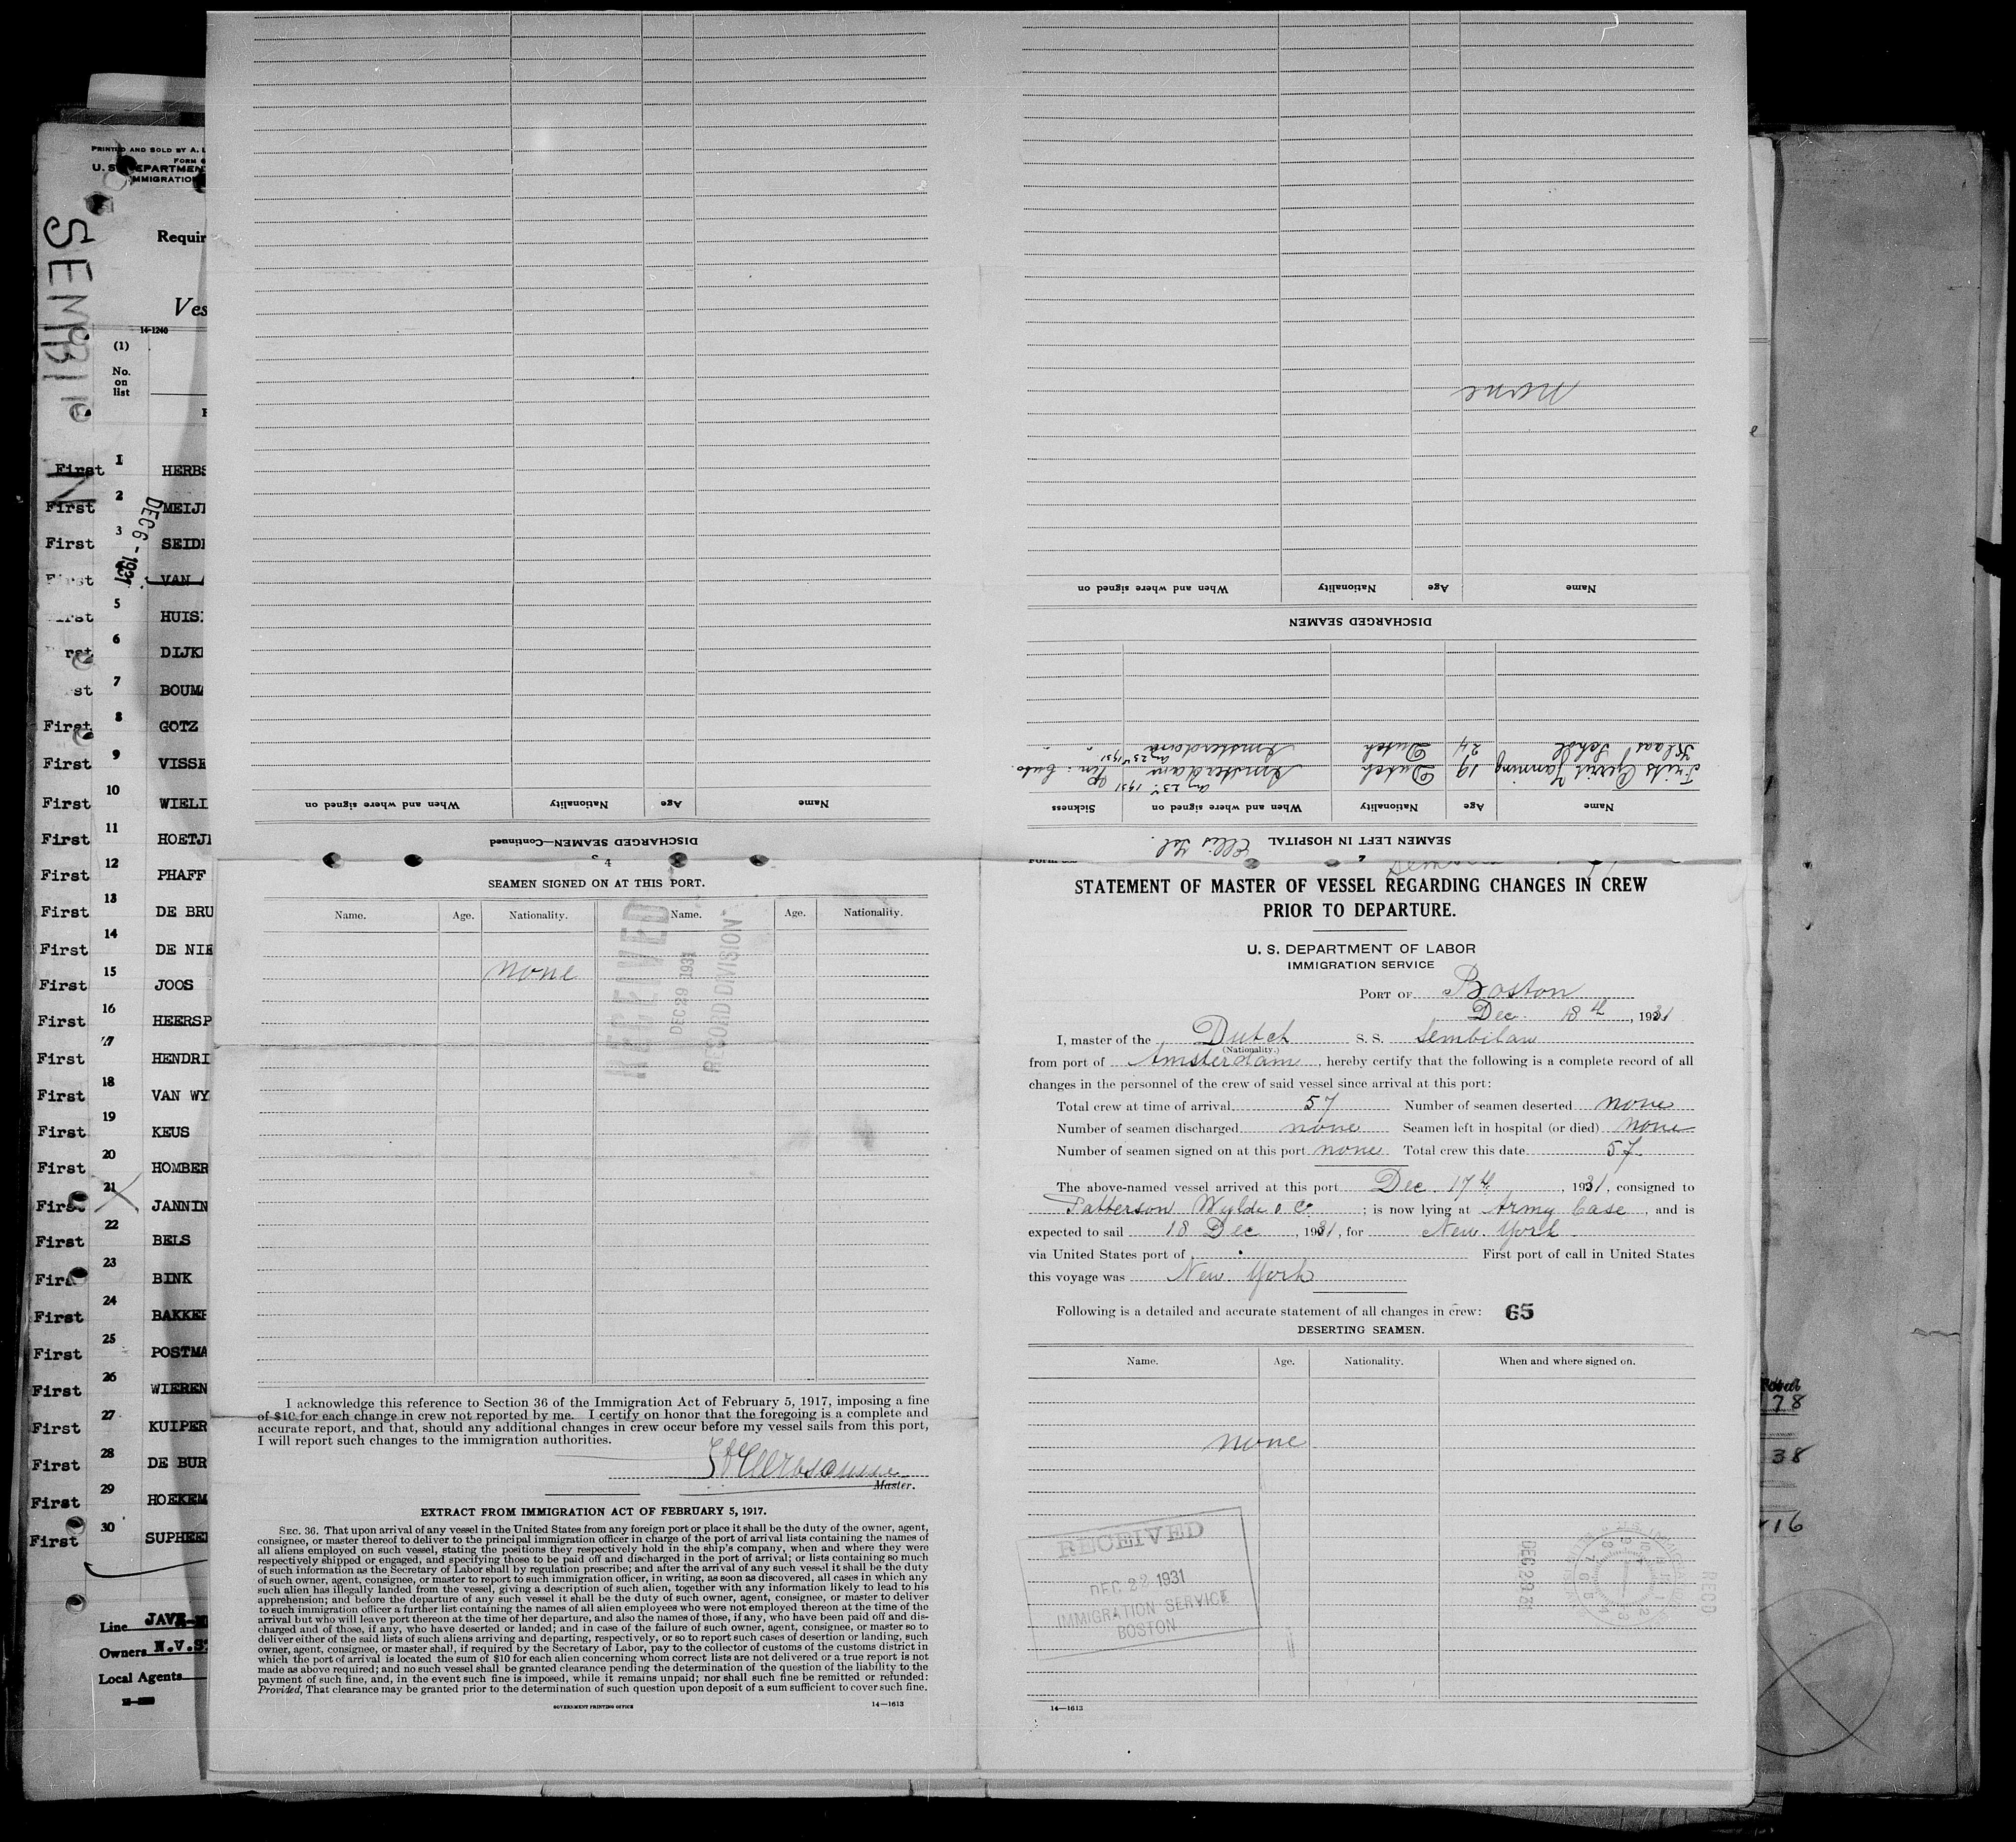 PRINTED AND SOLD BY A. L
FORM 6
U. S. DEPARTMEN
IMMIGRATIO
SEMBIL N
Requir
Ves
14-1240
(1)
No.
on
list
DEC 6 - 1931
First 1 HERBS
First 2 MEIJE
First 3 SEIDE
First 4 VAN
First 5 HUIS
First 6 DIJK
First 7 BOUMA
First 8 GOTZ
First 9 VISSE
First 10 WIELI
First 11 HOETJE
First 12 PHAFF
First 13 DE BRU
First 14 DE NIE
First 15 JOOS
First 16 HEERSP
First 17 HENDRI
First 18 VAN WY
First 19 KEUS
First 20 HOMBER
First 21 JANNIN
First 22 BELS
First 23 BINK
First 24 BAKKER
First 25 POSTMA
First 26 WIEREN
First 27 KUIPER
First 28 DE BUR
First 29 HOEKEM
First 30 SUPHEE
Line JAVA-
Owners N.V.S
Local Agents
DISCHARGED SEAMEN—Continued
Name Age Nationality When and where signed on
SEAMEN LEFT IN HOSPITAL Ellis Isl.
Name Age Nationality When and where signed on Sickness
Frits Gerrit Janning 19 Dutch Amsterdam Aug 23 1931
Klaas Schol 24 Dutch Amsterdam Aug 23 1931
DISCHARGED SEAMEN
Name Age Nationality When and where signed on
none
4
SEAMEN SIGNED ON AT THIS PORT.
Name. Age. Nationality. Name. Age. Nationality.
none
RECEIVED
DEC 29 1931
RECORD DIVISION
I acknowledge this reference to Section 36 of the Immigration Act of February 5, 1917, imposing a fine
of $10 for each change in crew not reported by me. I certify on honor that the foregoing is a complete and
accurate report, and that, should any additional changes in crew occur before my vessel sails from this port,
I will report such changes to the immigration authorities.
Master.
EXTRACT FROM IMMIGRATION ACT OF FEBRUARY 5, 1917.
SEC. 36. That upon arrival of any vessel in the United States from any foreign port or place it shall be the duty of the owner, agent,
consignee, or master thereof to deliver to the principal immigration officer in charge of the port of arrival lists containing the names of
all aliens employed on such vessel, stating the positions they respectively hold in the ship's company, when and where they were
respectively shipped or engaged, and specifying those to be paid off and discharged in the port of arrival; or lists containing so much
of such information as the Secretary of Labor shall by regulation prescribe; and after the arrival of any such vessel it shall be the duty
of such owner, agent, consignee, or master to report to such immigration officer, in writing, as soon as discovered, all cases in which any
such alien has illegally landed from the vessel, giving a description of such alien, together with any information likely to lead to his
apprehension; and before the departure of any such vessel it shall be the duty of such owner, agent, consignee, or master to deliver
to such immigration officer a further list containing the names of all alien employees who were not employed thereon at the time of the
arrival but who will leave port thereon at the time of her departure, and also the names of those, if any, who have been paid off and dis-
charged and of those, if any, who have deserted or landed; and in case of the failure of such owner, agent, consignee, or master so to
deliver either of the said lists of such aliens arriving and departing, respectively, or so to report such cases of desertion or landing, such
owner, agent, consignee, or master shall, if required by the Secretary of Labor, pay to the collector of customs of the customs district in
which the port of arrival is located the sum of $10 for each alien concerning whom correct lists are not delivered or a true report is not
made as above required; and no such vessel shall be granted clearance pending the determination of the question of the liability to the
payment of such fine, and, in the event such fine is imposed, while it remains unpaid; nor shall such fine be remitted or refunded:
Provided, That clearance may be granted prior to the determination of such question upon deposit of a sum sufficient to cover such fine.
GOVERNMENT PRINTING OFFICE 14—1613
STATEMENT OF MASTER OF VESSEL REGARDING CHANGES IN CREW
PRIOR TO DEPARTURE.
U. S. DEPARTMENT OF LABOR
IMMIGRATION SERVICE
PORT OF Boston
Dec. 18th, 1931
I, master of the Dutch S. S. Sembilan
(Nationality.)
from port of Amsterdam, hereby certify that the following is a complete record of all
changes in the personnel of the crew of said vessel since arrival at this port:
Total crew at time of arrival 57 Number of seamen deserted none
Number of seamen discharged none Seamen left in hospital (or died) none
Number of seamen signed on at this port none Total crew this date 57
The above-named vessel arrived at this port Dec. 17th, 1931, consigned to
Patterson Wylde & Co; is now lying at Army base, and is
expected to sail 18 Dec, 1931, for New York
via United States port of First port of call in United States
this voyage was New York
Following is a detailed and accurate statement of all changes in crew: 65
DESERTING SEAMEN.
Name. Age. Nationality. When and where signed on.
none
RECEIVED
DEC 22 1931
IMMIGRATION SERVICE
BOSTON
RECD
14—1613
78
38
16